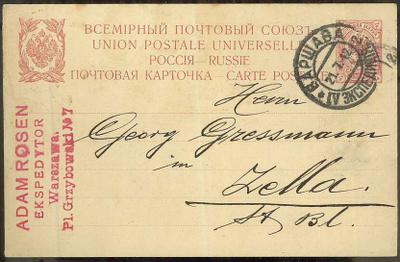 ВСЕМІРНЫЙ ПОЧТОВЫЙ СОЮЗЪ
UNION POSTALE UNIVERSELLE
РОССІЯ – RUSSIE
ПОЧТОВАЯ КАРТОЧКА – CARTE POS
ВАРШАВА
Herrn
Georg Gressmann
in
Zella.
St Bl.
ADAM ROSEN
EKSPEDYTOR
Warszawa.
Pl. Grzybowski № 7